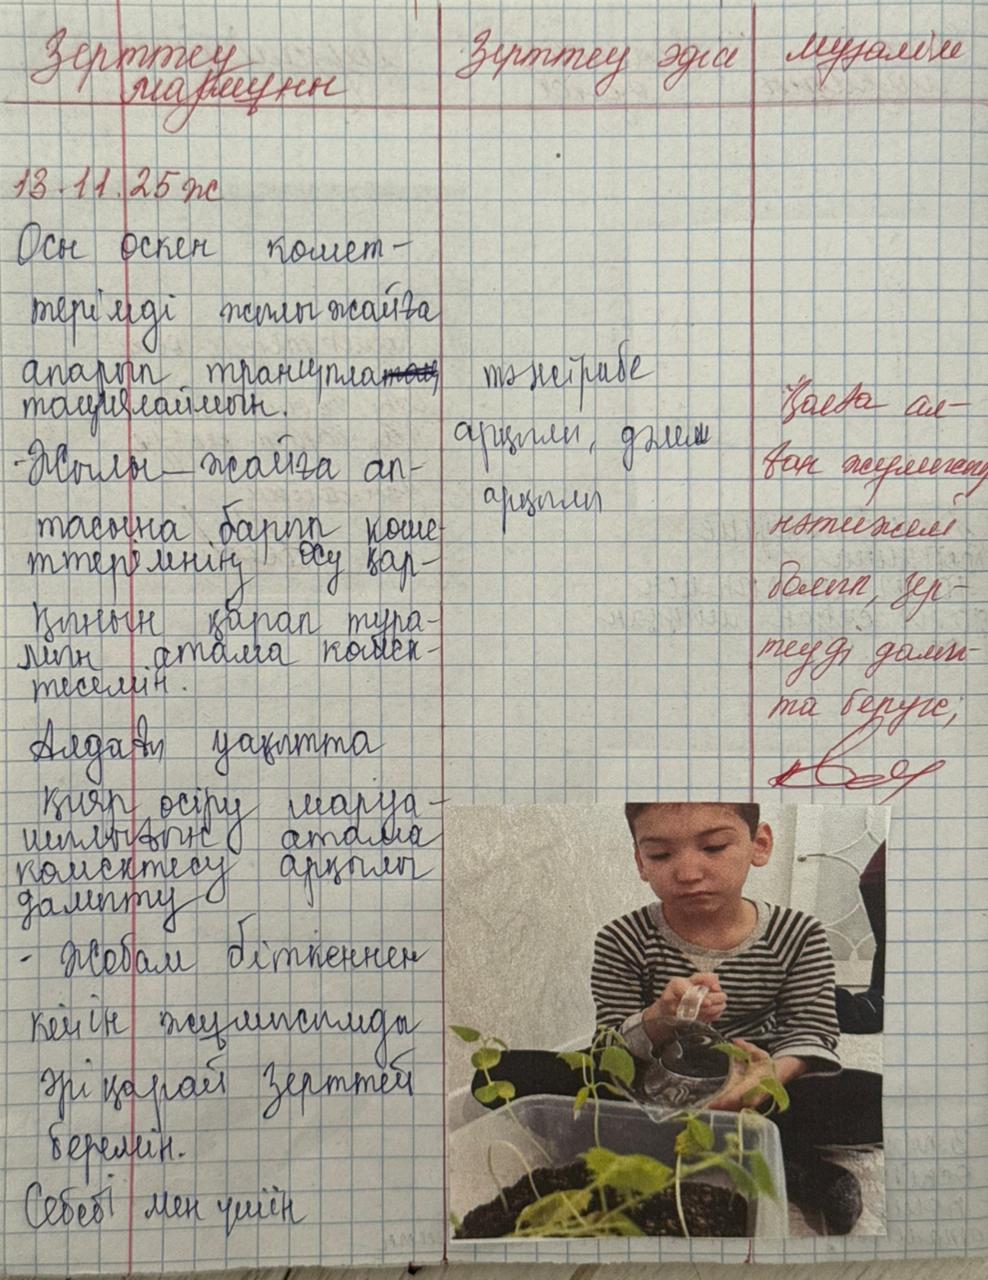 Зерттеу
мазмұны
Зерттеу әдісі
мұғалім
13.11.25ж
Осы өскен көшет-
терімді жылыжайға
апарып транцпла
тациялаймын.
- Жылы-жайға ап-
тасына барып көше
ттерімнің өсу қар-
қынын қарап тұра-
мын атама көмек-
теселін.
Алдағы уақытта
қияр өсіру шаруа-
шылығын атама
көмектесу арқылы
дамыту
- Жобам біткеннен
кейін жұмысымды
әрі қарай Зерттей
беремін.
Себебі мен үшін
тәжірибе
арқылы, дәлел
арқылы
Қолға ал-
ған жұмысың
нәтижелі
болып, зер-
теуді дамы-
та беруге,